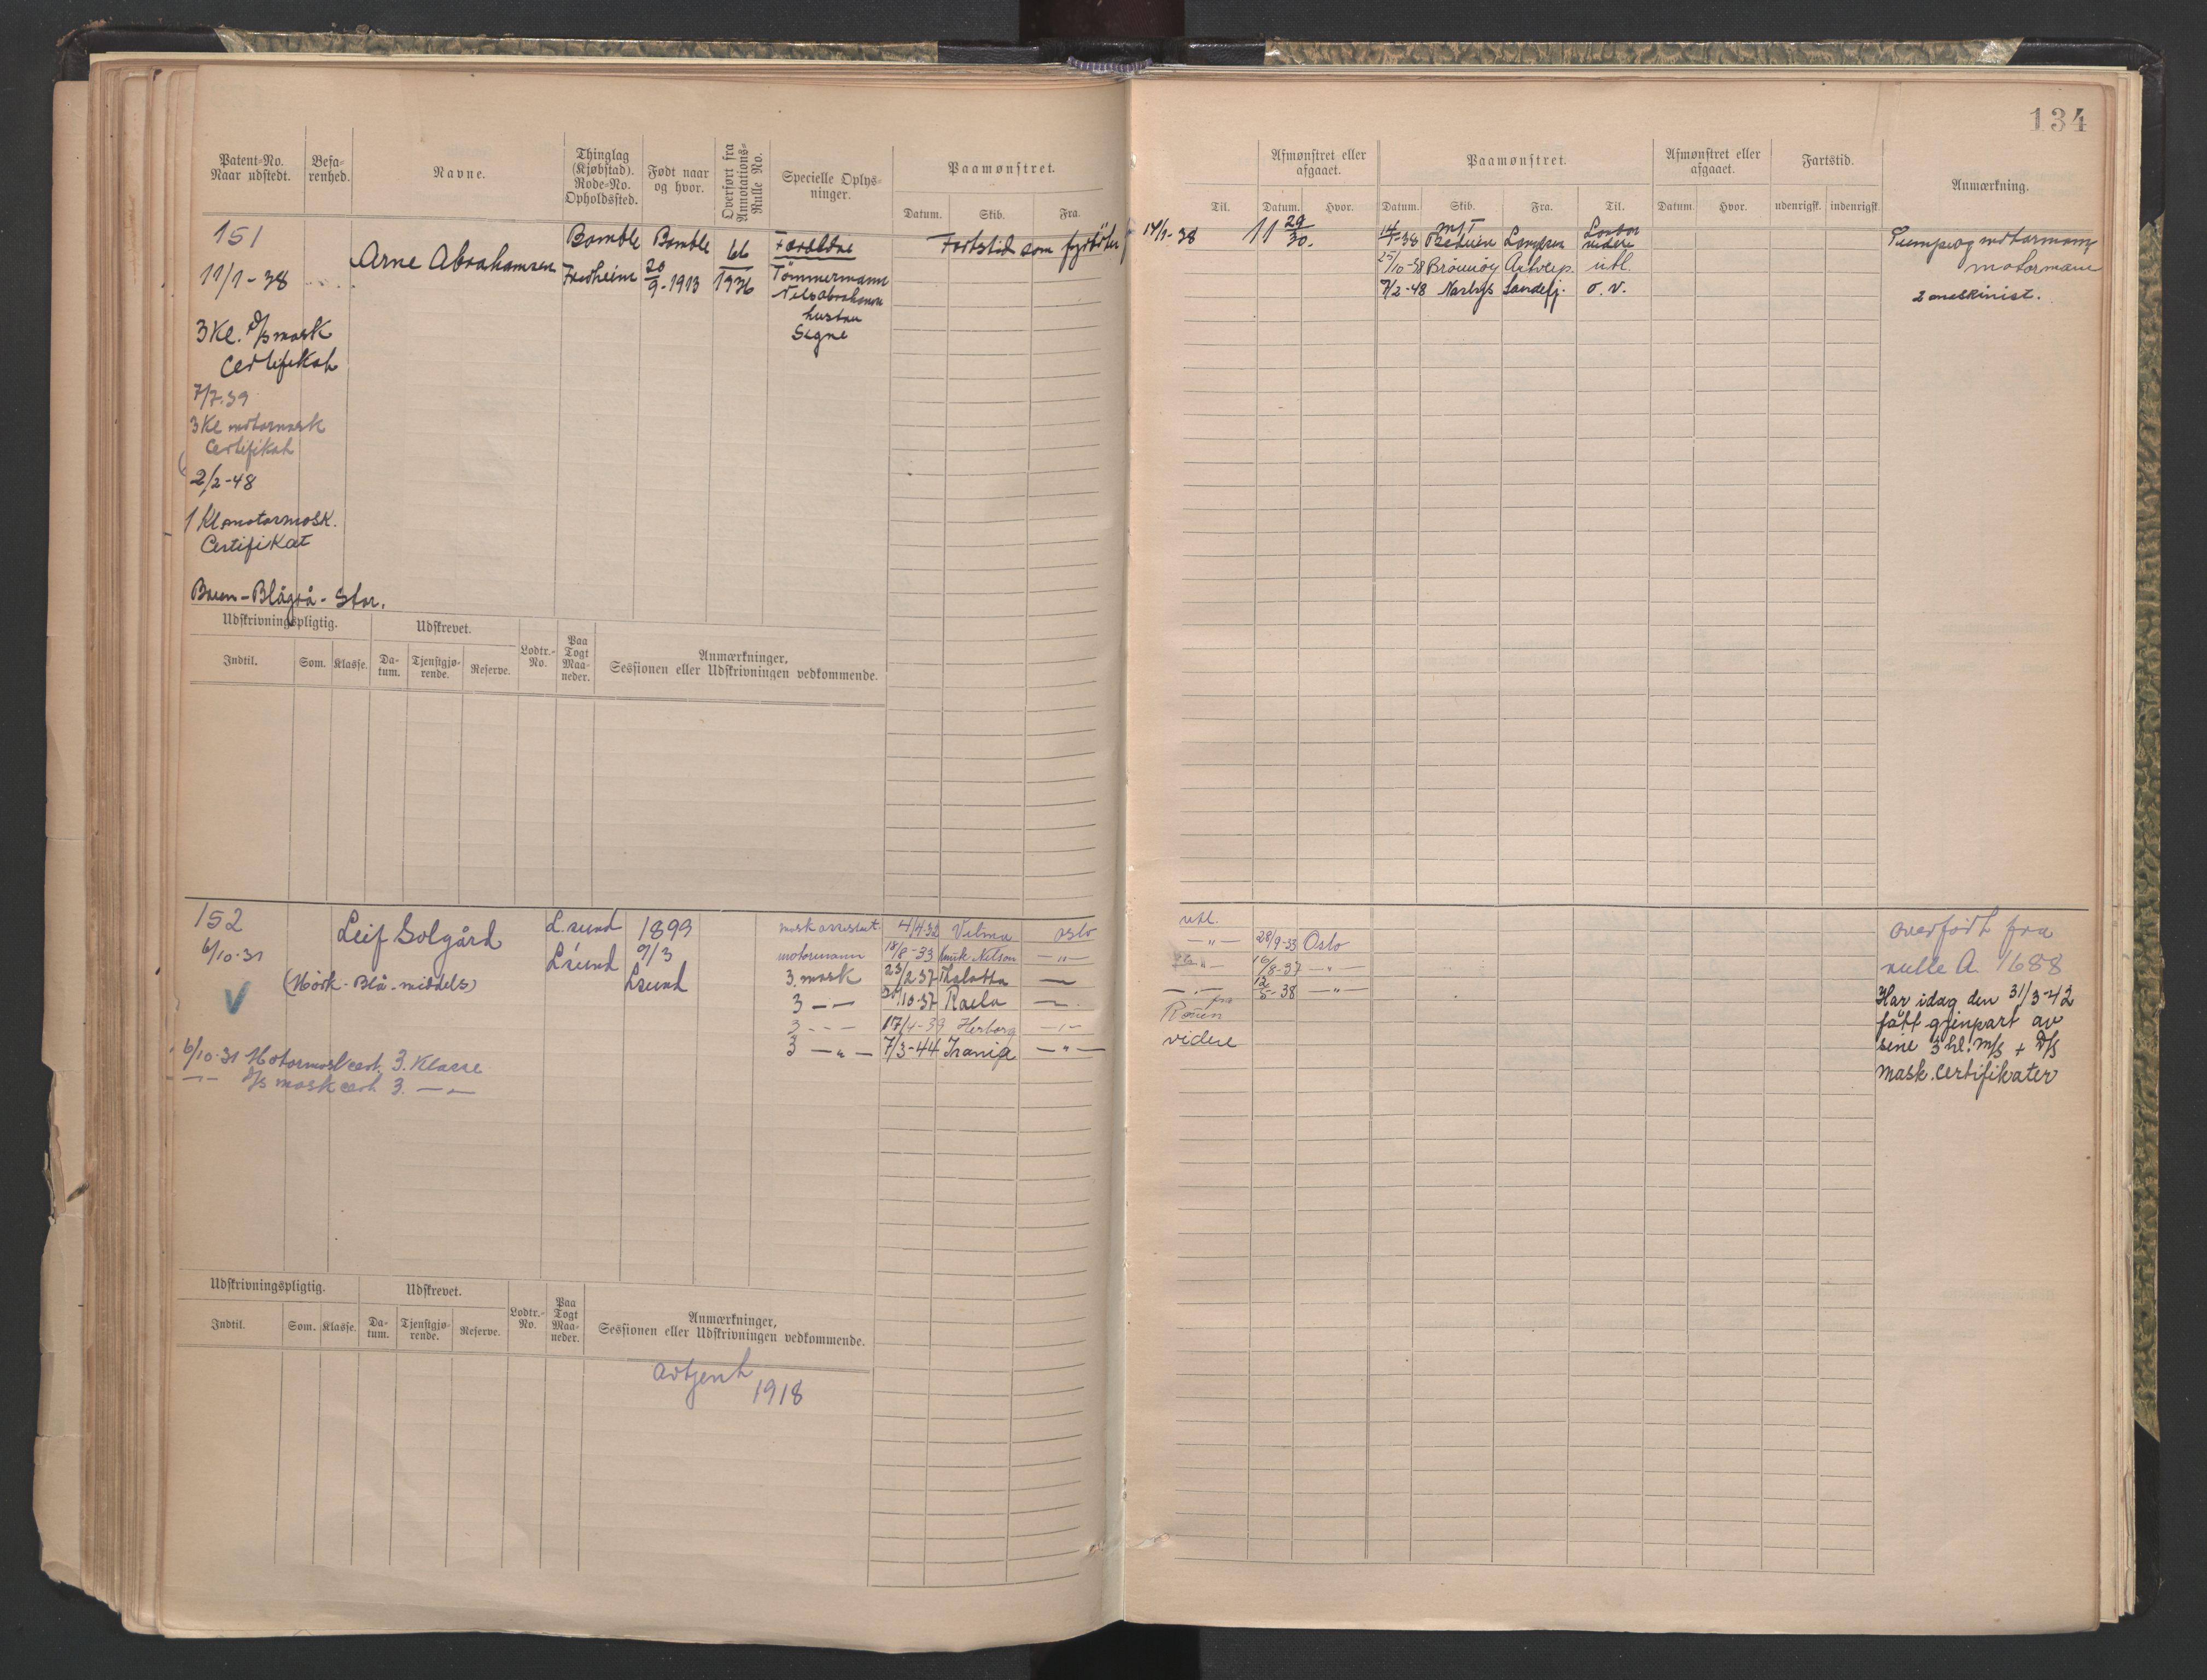 134
Patent-No. Naar udstedt.
Befa-renhed.
Navne.
Thinglag (Kjøbstad). Rode-No. Opholdssted.
Født naar og hvor.
Overført fra Annotations-Rulle No.
Specielle Oplys-ninger.
Paamønstret.
Datum. Skib. Fra. Til.
Afmønstret eller afgaaet.
Datum. Hvor.
Paamønstret.
Datum. Skib. Fra. Til.
Afmønstret eller afgaaet.
Datum. Hvor.
Fartstid.
udenrigsk. indenrigsk.
Anmærkning.
151
11/1-38
Arne Abrahamsen
Bamble
Fredheim
Bamble
20/9-1913
66
1936
Foreldre
Tømmermann
Nils Abrahamsen
hustru
Signe
Fartstid som fyrbøter
14/1-38
11 29/30.
M/T
London
videre
25/10-38 Brønnøy Antverp. utl.
7/2-48 Sandefj. o. v.
motormann
motormann
2 maskinist.
3 Kl. D/S mask
Certifikat
7/7.39
3 Kl motormask
Certifikat
2/2-48
1 Kl motormask.
Certifikat
Brun-Blågrå-Stor.
Udskrivningspligtig.
Indtil. Som. Klasse.
Udskrevet.
Da-tum. Tjenstgjø-rende. Reserve.
Lodtr.-No.
Paa Togt Maa-neder.
Anmærkninger,
Sessionen eller Udskrivningen vedkommende.
152
6/10-31
Leif Solgård
(Mörk-Blå-middels)
L.sund
L.sund
1899
9/3
Lsund
mask assistent 4/4 32 Vilma oslo utl.
motormann 18/8-33 Knut Nelson -"- -"- 28/9-33 Oslo
3. mask 23/2 37 Thalatta -"- 16/8-37 -"-
3 -"- 10-37 -"- -"- 12/5-38 -"-
3 -"- 17/4-39 Herborg -"- fra Rouen
3 -"- 7/3-44 Irania -"- videre
overfört fra
rulle A. 1688
Har idag den 31/3-42
fått gjenpart av
sine 3 kl. M/S + D/S
mask. certifikater
6/10-31 Motormask cert. 3. Klasse
-"- D/S mask cert 3. -"-
Udskrivningspligtig.
Indtil. Som. Klasse.
Udskrevet.
Da-tum. Tjenstgjø-rende. Reserve.
Lodtr.-No.
Paa Togt Maa-neder.
Anmærkninger,
Sessionen eller Udskrivningen vedkommende.
avtjent
1918